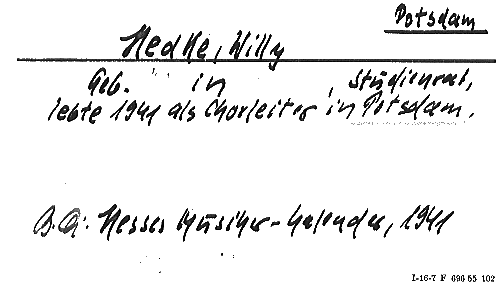 Potsdam
Hedke, Willy
Geb. in , Studienrat,
lebte 1941 als Chorleiter in Potsdam.
B.Qu.: Hesses Musiker-Kalender, 1941
I-16-7 F 696 55 102